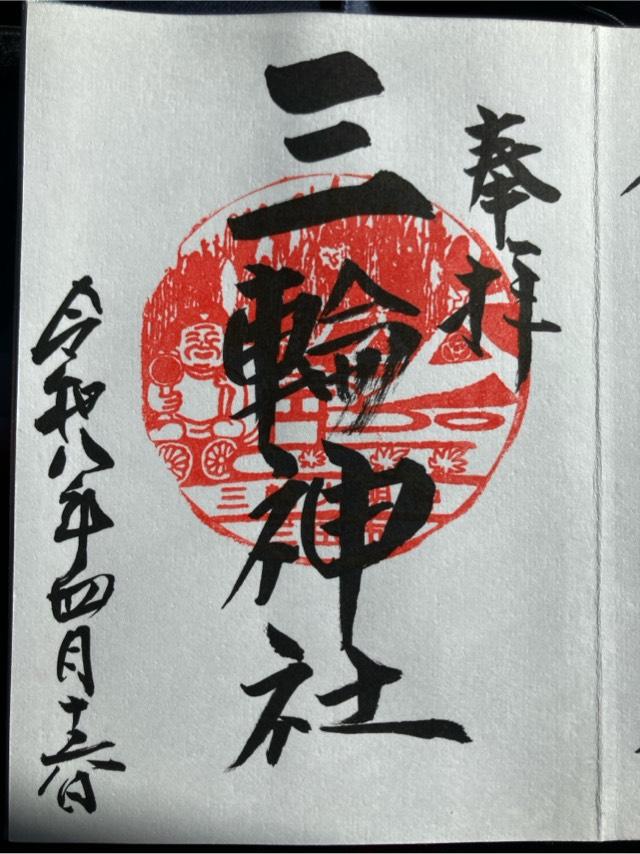 奉拝
三輪神社
令和八年四月十三日